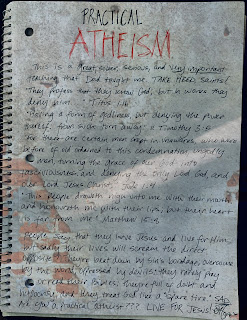 PRACTICAL
ATHEISM
This is a Great, severe, serious, and very important
teaching that God taught me. TAKE HEED Saints!
They profess that they know God; but in works they
deny him. Titus 1:16
Having a form of godliness, but denying the power
thereof: from such turn away. 2 Timothy 3:5
For there are certain men crept in unawares, who were
before of old ordained to this condemnation, ungodly
men, turning the grace of our God into
lasciviousness, and denying the only Lord God, and
our Lord Jesus Christ. Jude 1:4
This people draweth nigh unto me with their mouth,
and honoureth me with their lips; but their heart
is far from me. Matthew 15:8
People say that they have Jesus and live for Him,
but their lives will scream the direct
opposite. They're beat down by sin's bondage, overcome
by the world, oppressed by devils; they rarely pray
or read their Bibles; they're full of doubt and
hypocrisy, and they treat God like a "spare tire." SAD.
Are you a practical atheist??? LIVE FOR JESUS!